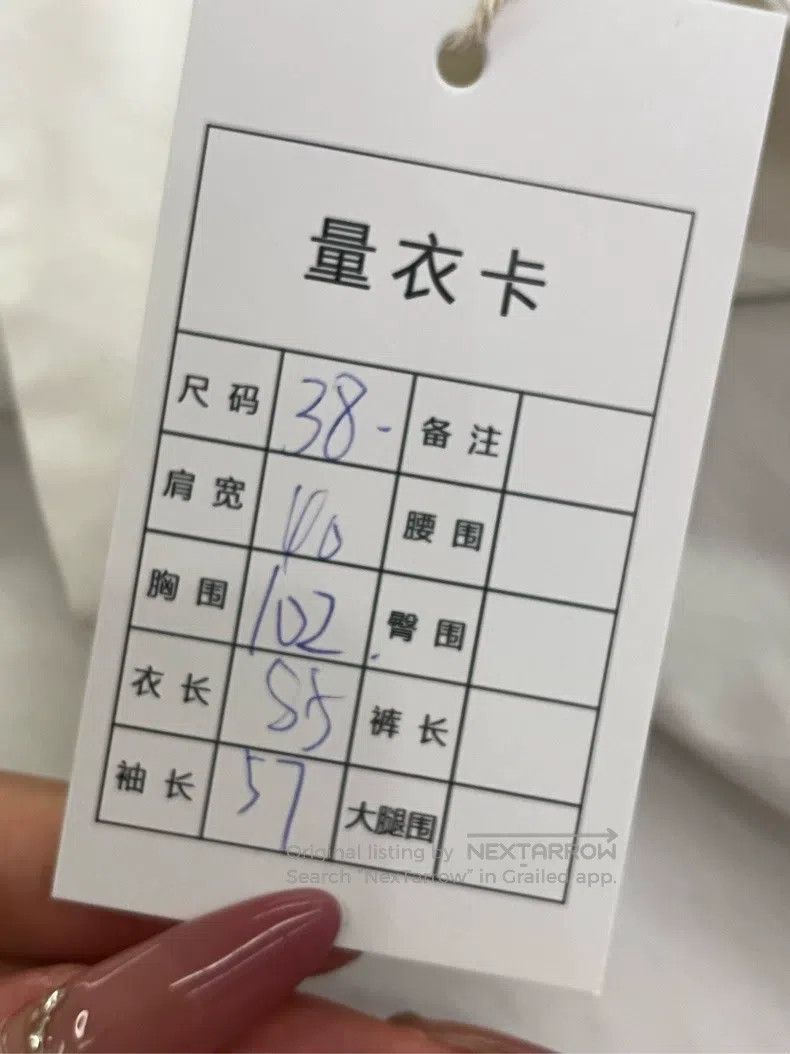 量衣卡
尺码 38- 备注
肩宽 40 腰围
胸围 102 臀围
衣长 55 裤长
袖长 57 大腿围
Original listing by NEXTARROW
Search "NexTarrow" in Grailed app.